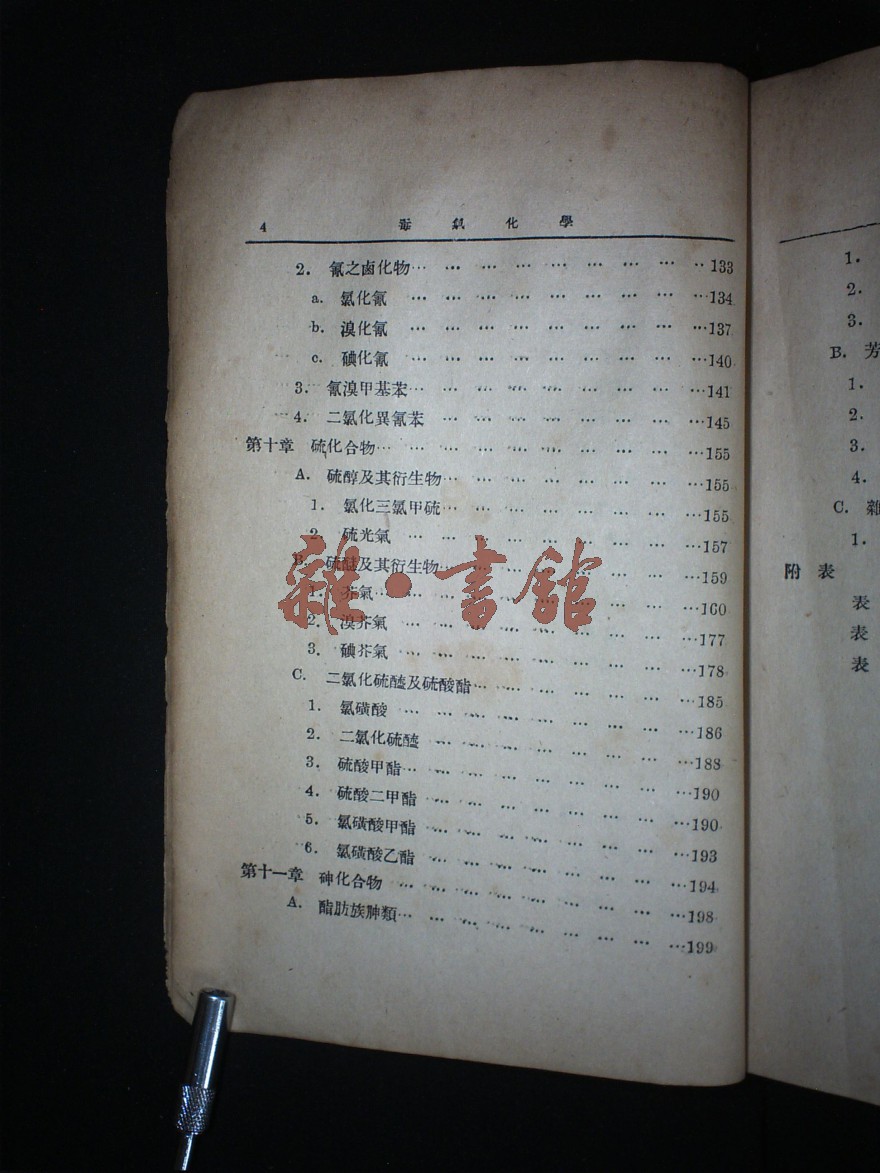 4 毒氣化學
2. 氰之鹵化物… … … … … … … … ‥133
a. 氯化氰 … … … … … … … … …134
b. 溴化氰 … … … … … … … … …137
c. 碘化氰 … … … … … … … … …140
3. 氰溴甲基苯… … … … … … … …141
4. 二氯化異氰苯 … … … … … … … …145
第十章 硫化合物… … … … … … … … … …155
A. 硫醇及其衍生物… … … … … … … …155
1. 氯化三氯甲硫… … … … … … … …155
2. 硫光氣 … … … … … … … … …157
B. 硫醚及其衍生物… … … … … … … …159
1. 芥氣… … … … … … … … … …160
2. 溴芥氣 … … … … … … … … …177
3. 碘芥氣 … … … … … … … … …178
C. 二氯化硫醯及硫酸酯… … … … … … …185
1. 氯磺酸 … … … … … … … … …186
2. 二氯化硫醯 … … … … … … … …188
3. 硫酸甲酯… … … … … … … … …190
4. 硫酸二甲酯 … … … … … … … …190
5. 氯磺酸甲酯 … … … … … … … …193
6. 氯磺酸乙酯 … … … … … … … …194
第十一章 砷化合物 … … … … … … … … …198
A. 酯肪族胂類… … … … … … … … …199
1.
2.
3.
B. 芳
1.
2.
3.
4.
C. 雜
1.
附表
表
表
表
雜·書館